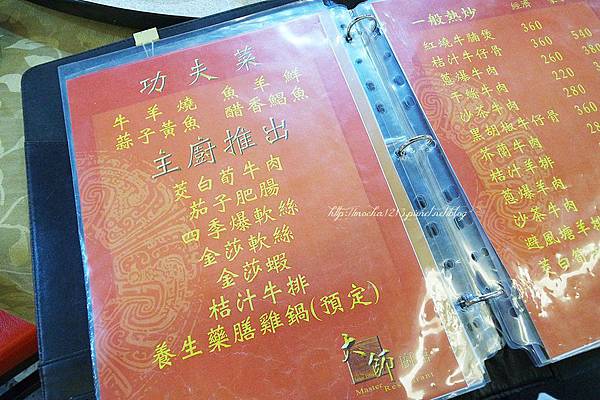 功夫菜
牛羊燒 魚羊鮮
蒜子黃魚 醋香鯧魚
主廚推出
茭白荀牛肉
茄子肥腸
四季爆軟絲
金莎軟絲
金莎蝦
桔汁牛排
養生藥膳雞鍋(預定)
大師
Master Restaurant
一般熱炒
紅燒牛腩煲 360 540
桔汁牛仔骨 360
蔥爆牛肉 260
干絲牛肉 220
沙茶牛肉
黑胡椒牛仔骨 360
芥蘭牛肉
桔汁羊排
蔥爆羊肉
沙茶牛肉
避風塘羊
茭白